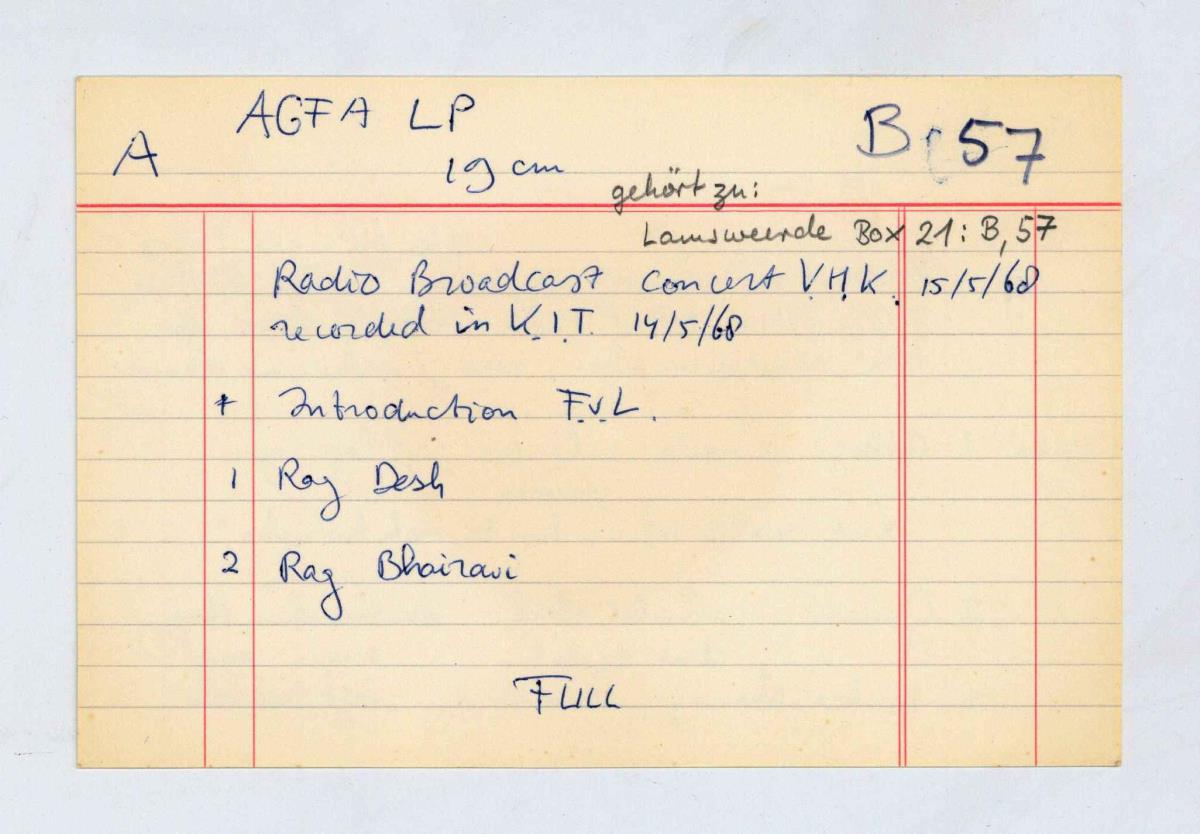 AGFA LP
A 19 cm B 57
gehört zu:
Lamsweerde Box 21: B, 57
Radio Broadcast concert V.H.K. 15/5/68
recorded in K.I.T. 14/5/68
* Introduction F.v.L.
1 Rag Desh
2 Rag Bhairavi
FULL